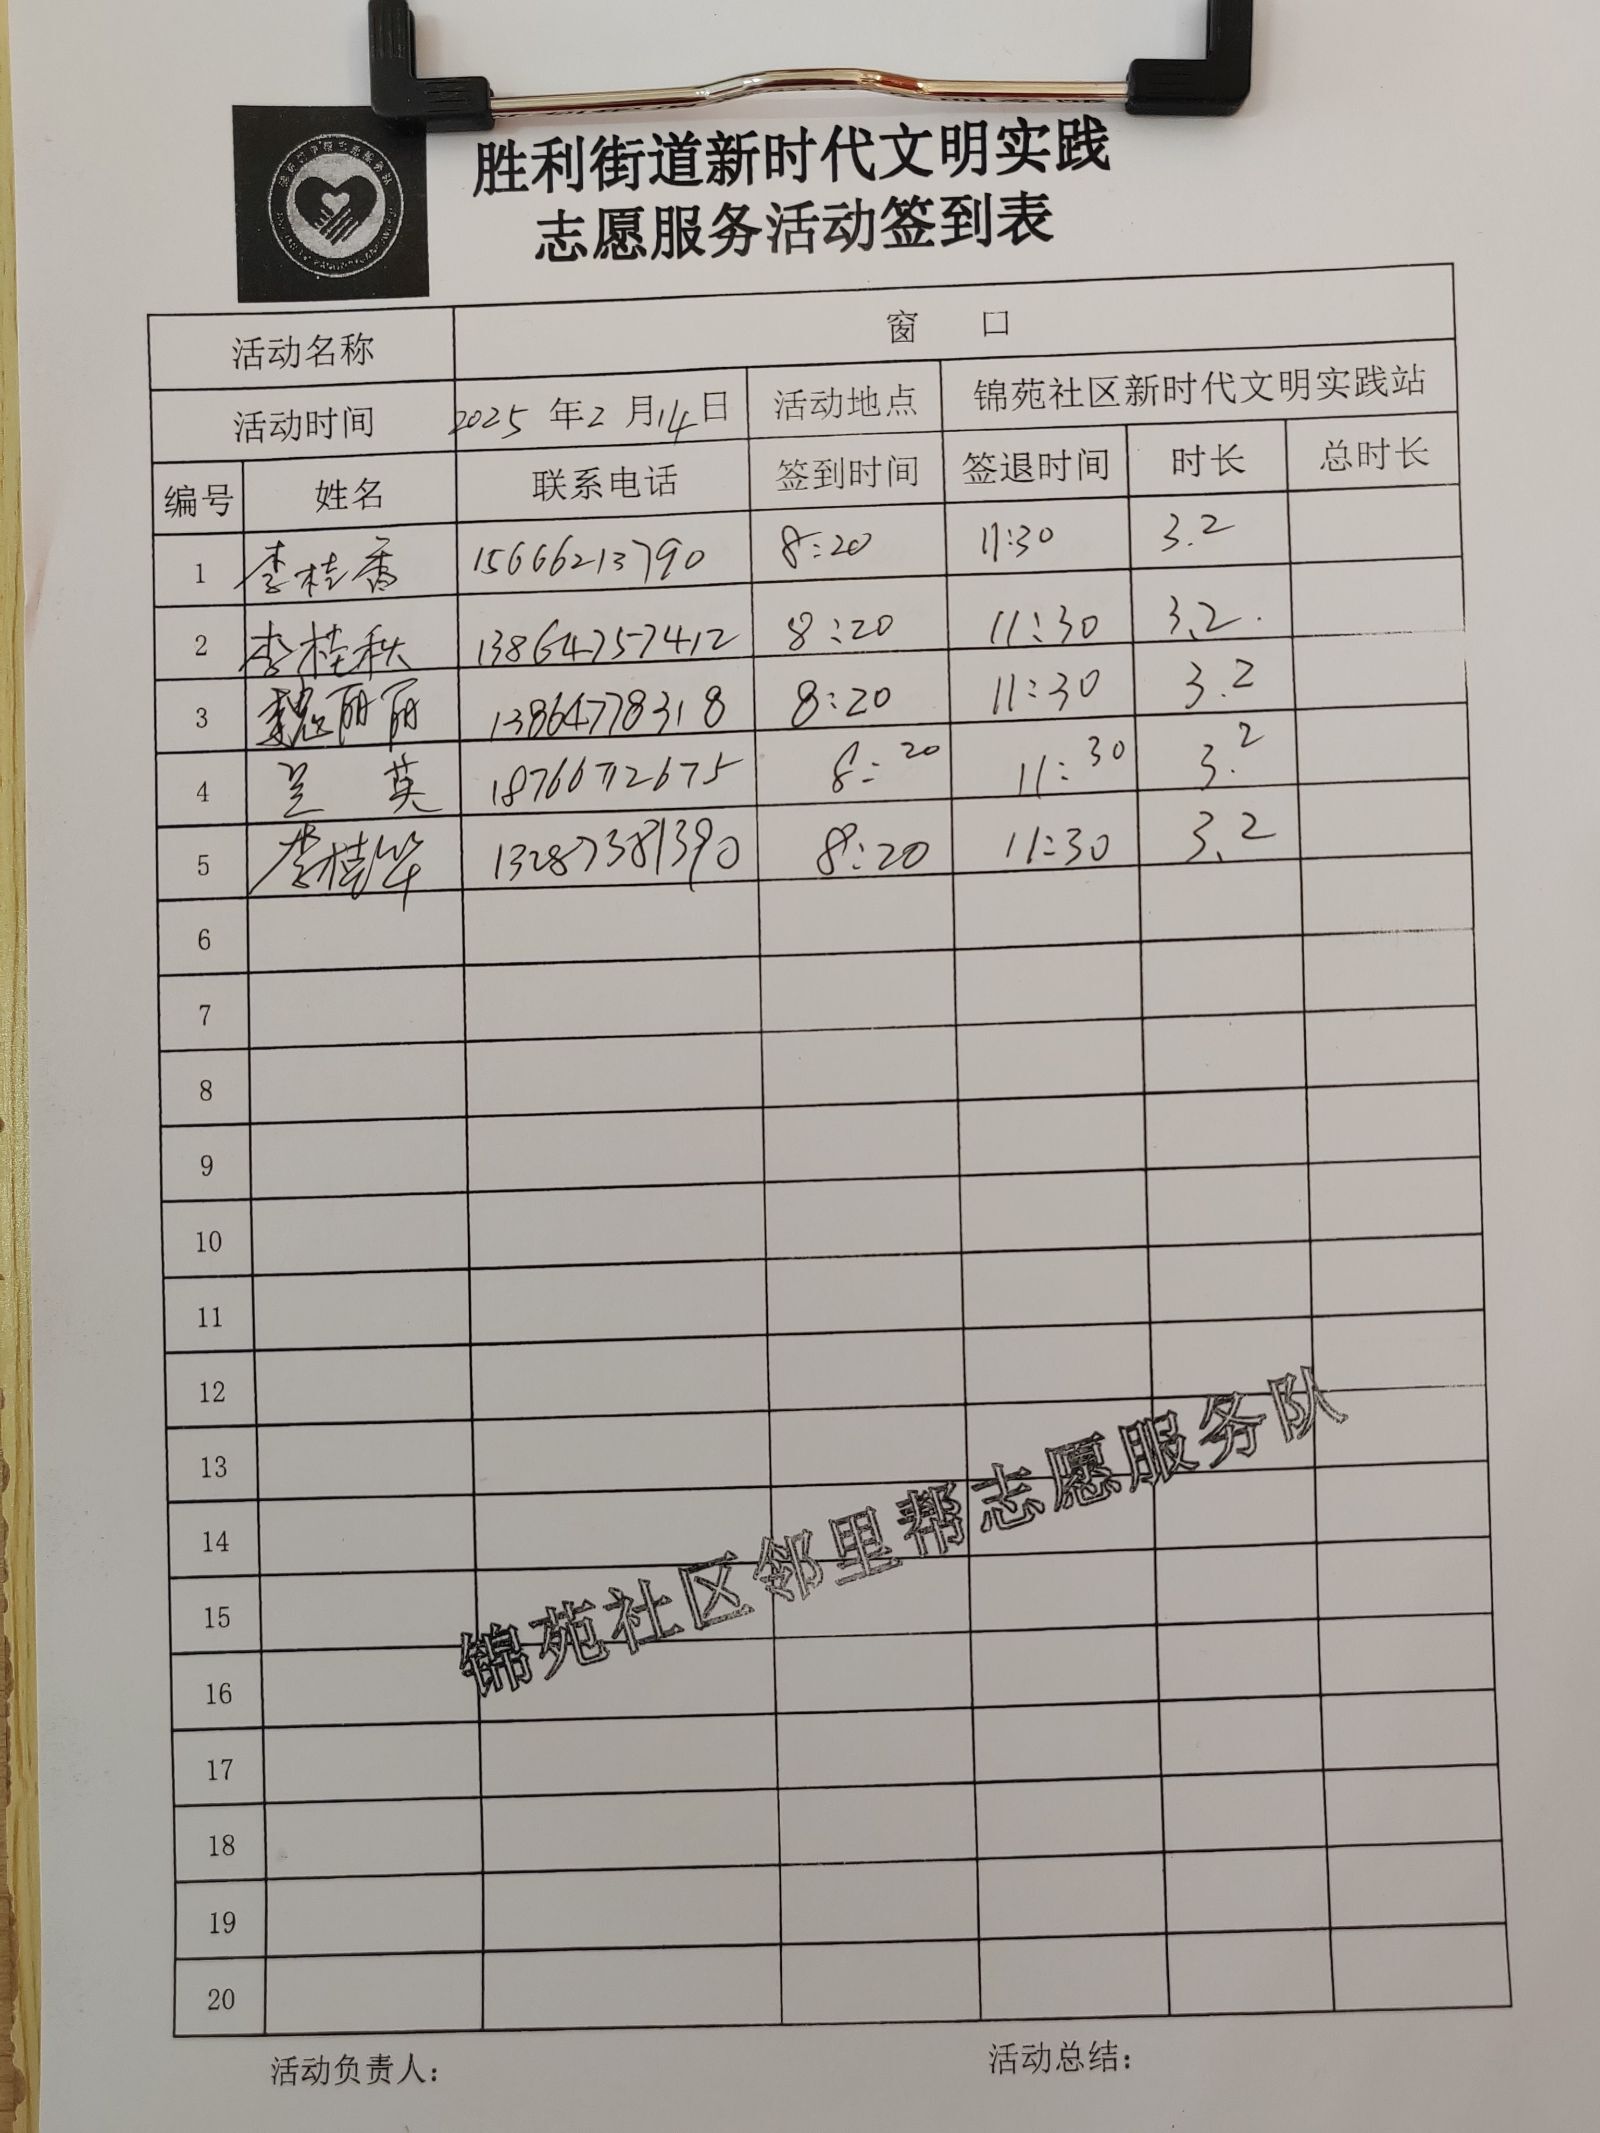 胜利街道新时代文明实践
志愿服务活动签到表
活动名称 窗 口
活动时间 2025 年 2 月 14 日 活动地点 锦苑社区新时代文明实践站
编号 姓名 联系电话 签到时间 签退时间 时长 总时长
1 李桂香 15666213790 8:20 11:30 3.2
2 李桂秋 13864757412 8:20 11:30 3.2
3 魏丽丽 13864778318 8:20 11:30 3.2
4 兰 英 18766712675 8:20 11:30 3.2
5 李桂华 13287381390 8:20 11:30 3.2
6
7
8
9
10
11
12
13
14
15
16
17
18
19
20
锦苑社区邻里帮志愿服务队
活动负责人: 活动总结: